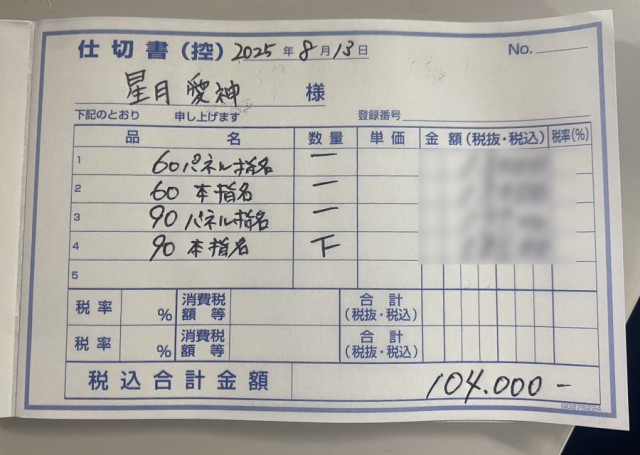 仕切書(控) 2025年8月13日 No.
星月 愛神 様
下記のとおり 申し上げます 登録番号
品名 数量 単価 金額(税抜・税込) 税率(%)
1 60パネル指名 一
2 60 本指名 一
3 90パネル指名 一
4 90 本指名 下
5
税率 % 消費税額等 合計(税抜・税込)
税率 % 消費税額等 合計(税抜・税込)
税込合計金額 104.000-